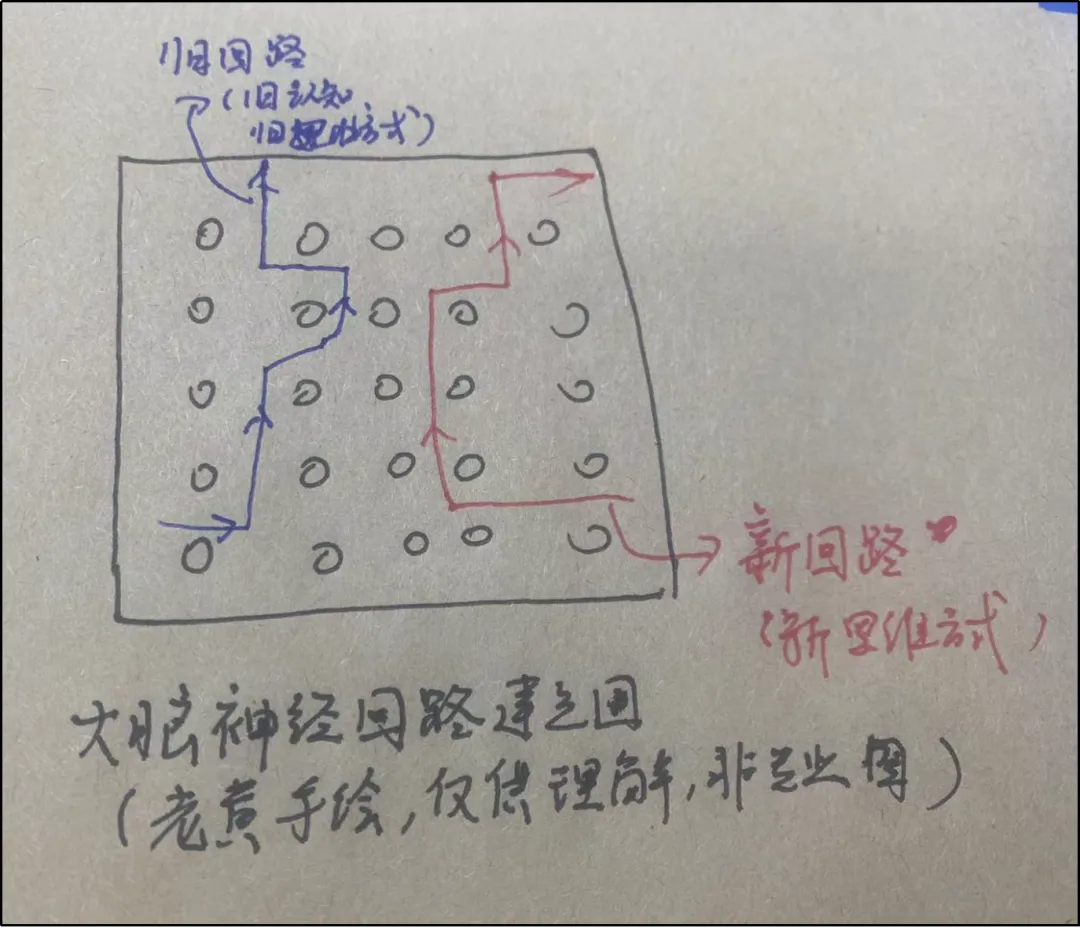 旧回路
(旧认知
旧思维方式)
新回路
(新思维方式)
大脑神经回路建立图
(老黄手绘,仅供理解,非专业图)